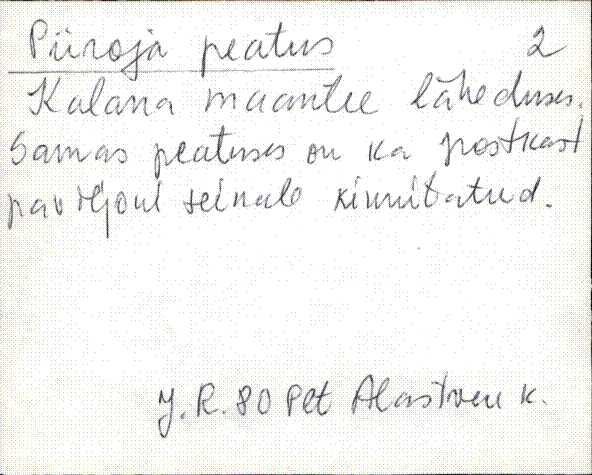 Piiroja peatus 2
Kalana maantee läheduses.
Samas peatuses on ka postkast
paviljoni seinale kinnitatud.
J. R. 80 Plt Alastvere k.